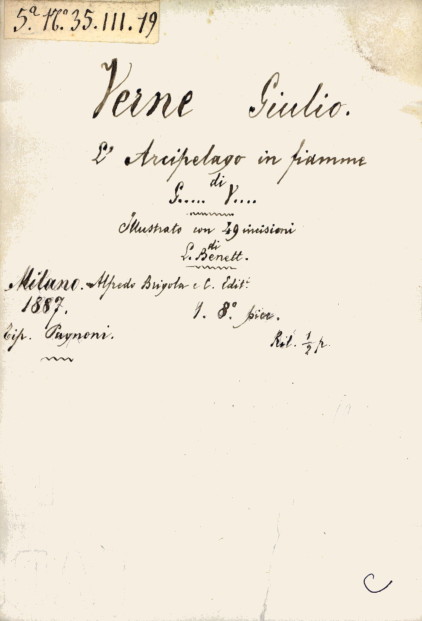 5.ª N.º 35.III.19
Verne Giulio.
L' Arcipelago in fiamme
di
G..... V....
Illustrato con 49 incisioni
di
L. Benett.
Milano. Alfredo Brigola e C. Edit.
1887. 1. 8.º picc.
Tip. Pagnoni. Ril. ½ p.
C